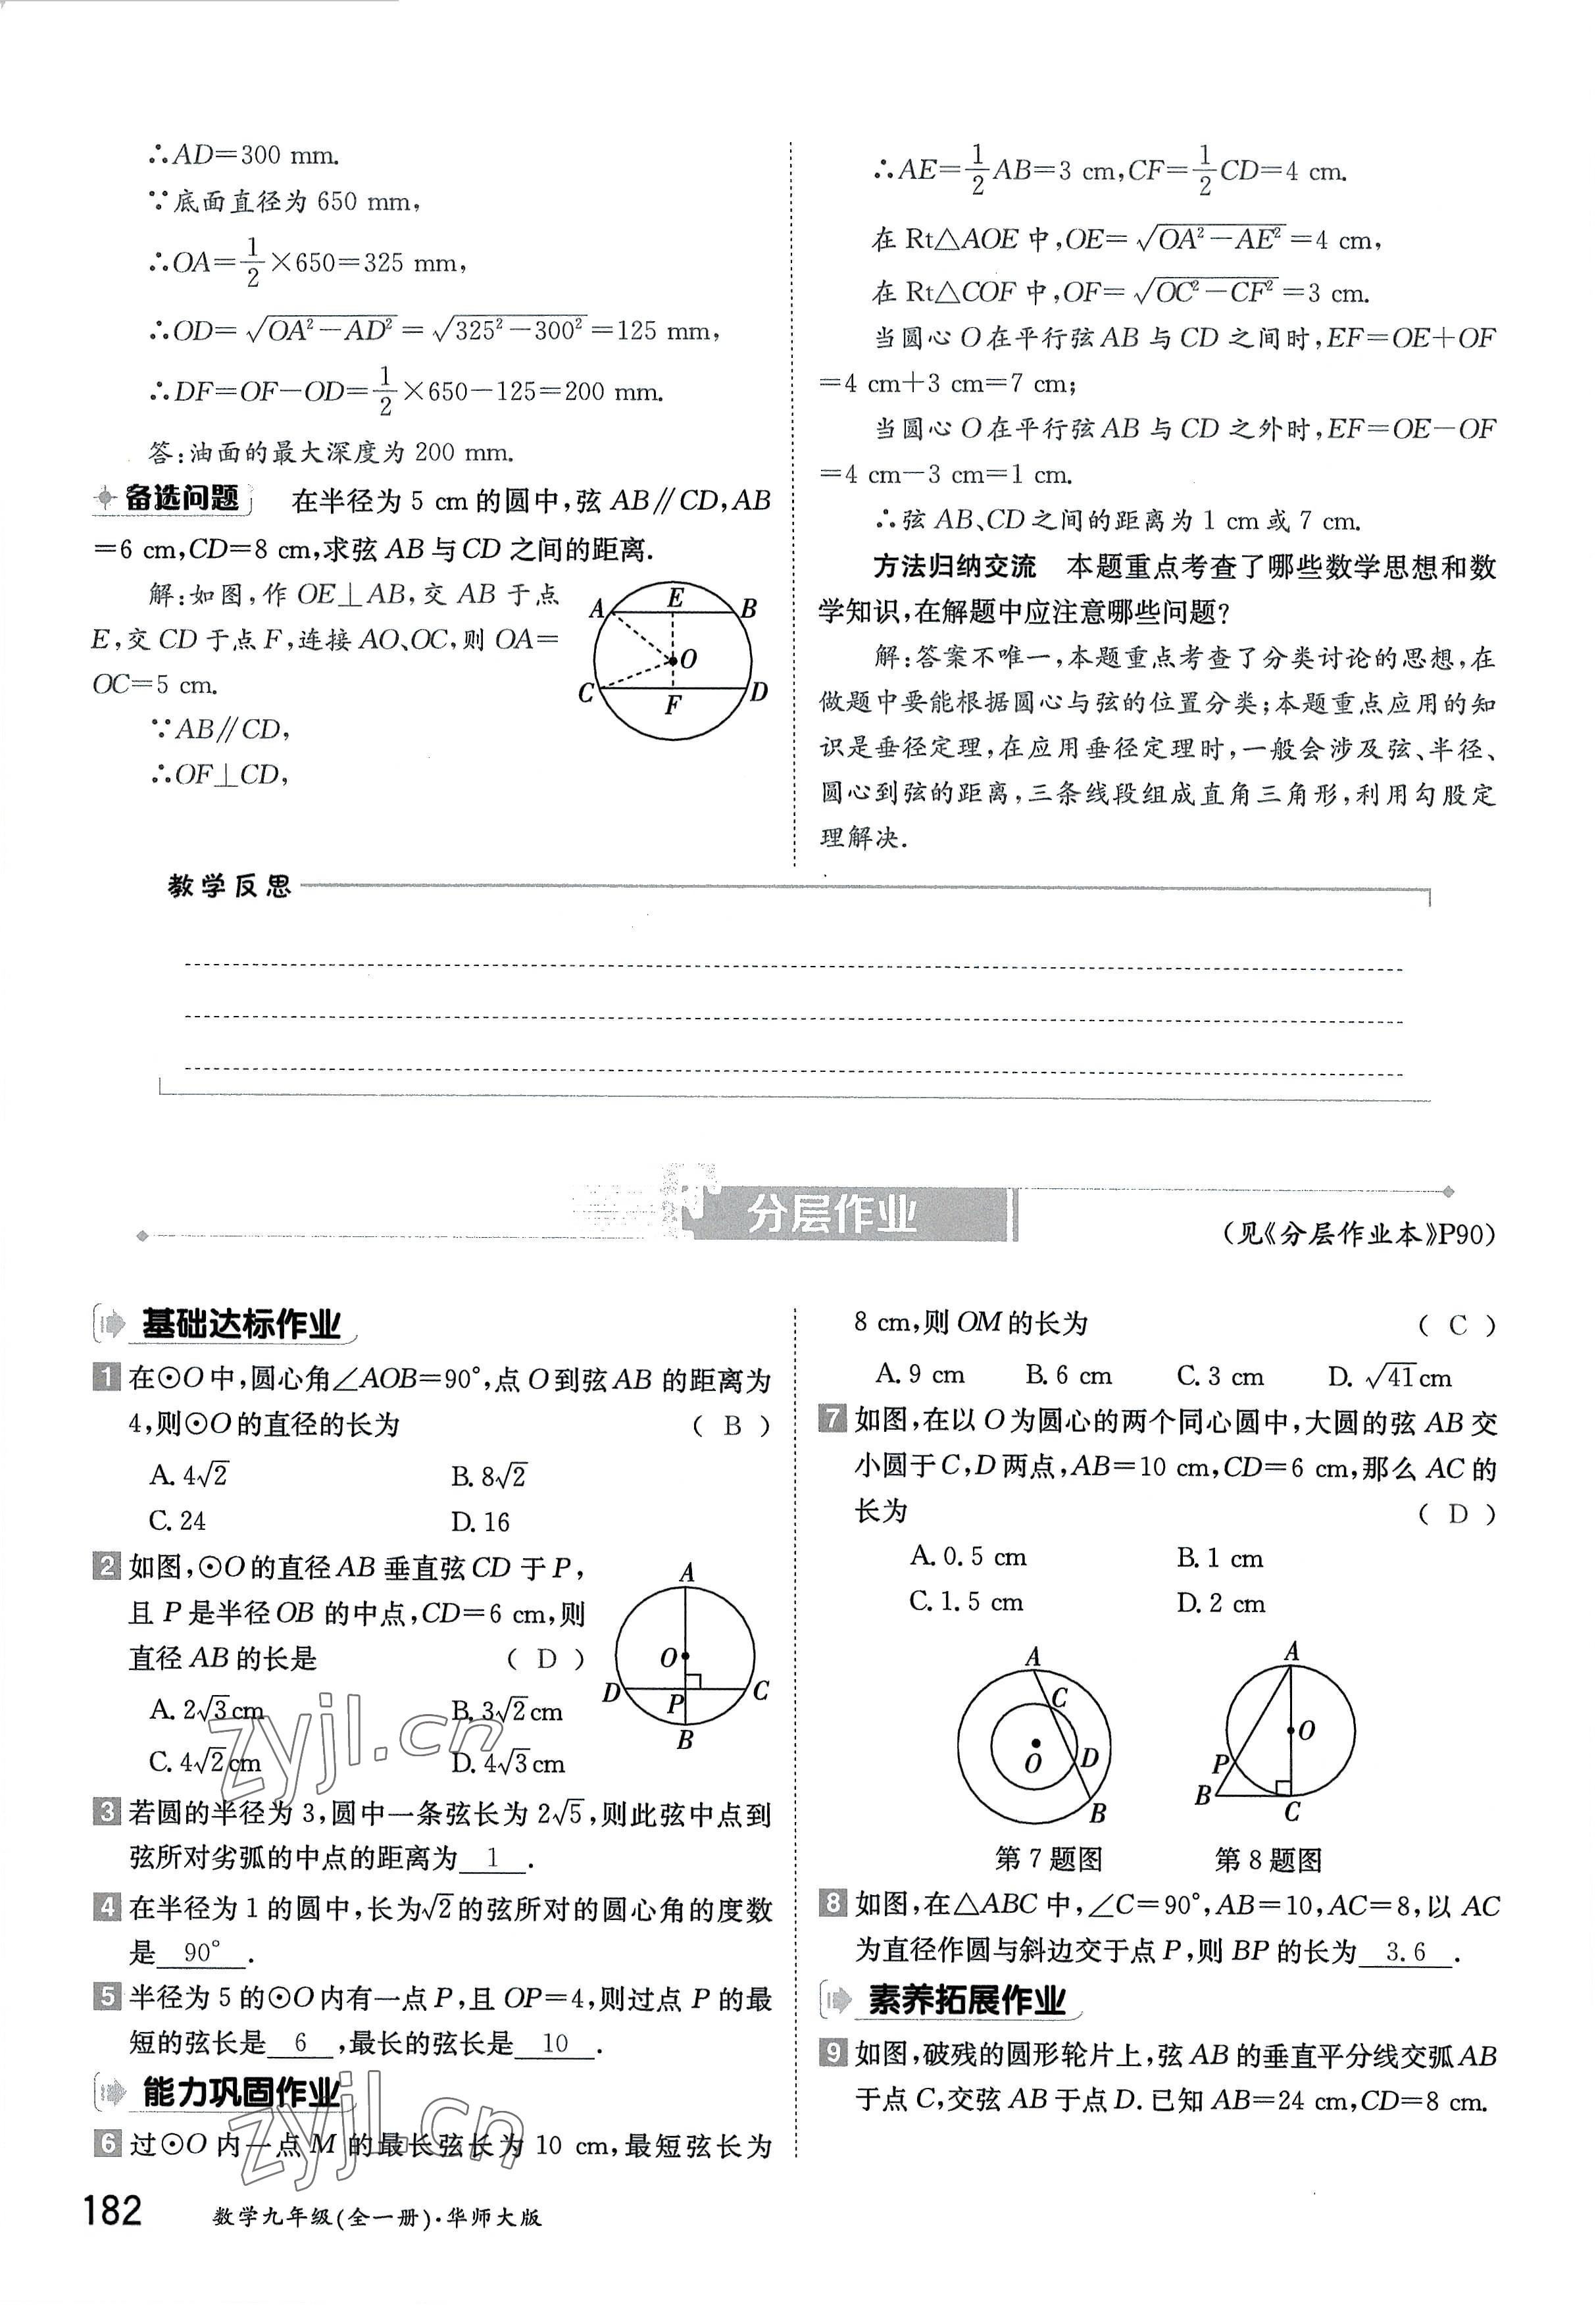 ∴AD=300 mm.
∵底面直径为 650 mm,
∴OA=1/2×650=325 mm,
∴OD=√(OA²-AD²)=√(325²-300²)=125 mm,
∴DF=OF-OD=1/2×650-125=200 mm.
答:油面的最大深度为 200 mm.
备选问题 在半径为 5 cm 的圆中,弦 AB∥CD,AB
=6 cm,CD=8 cm,求弦 AB 与 CD 之间的距离.
解:如图,作 OE⊥AB,交 AB 于点
E,交 CD 于点 F,连接 AO、OC,则 OA=
OC=5 cm.
∵AB∥CD,
∴OF⊥CD,
A E B
O
C F D
∴AE=1/2AB=3 cm,CF=1/2CD=4 cm.
在 Rt△AOE 中,OE=√(OA²-AE²)=4 cm,
在 Rt△COF 中,OF=√(OC²-CF²)=3 cm.
当圆心 O 在平行弦 AB 与 CD 之间时,EF=OE+OF
=4 cm+3 cm=7 cm;
当圆心 O 在平行弦 AB 与 CD 之外时,EF=OE-OF
=4 cm-3 cm=1 cm.
∴弦 AB、CD 之间的距离为 1 cm 或 7 cm.
方法归纳交流 本题重点考查了哪些数学思想和数
学知识,在解题中应注意哪些问题?
解:答案不唯一,本题重点考查了分类讨论的思想,在
做题中要能根据圆心与弦的位置分类;本题重点应用的知
识是垂径定理,在应用垂径定理时,一般会涉及弦、半径、
圆心到弦的距离,三条线段组成直角三角形,利用勾股定
理解决.
教学反思
分层作业
(见《分层作业本》P90)
基础达标作业
1 在⊙O 中,圆心角∠AOB=90°,点 O 到弦 AB 的距离为
4,则⊙O 的直径的长为 ( B )
A. 4√2 B. 8√2
C. 24 D. 16
2 如图,⊙O 的直径 AB 垂直弦 CD 于 P,
且 P 是半径 OB 的中点,CD=6 cm,则
直径 AB 的长是 ( D )
A. 2√3 cm B. 3√2 cm
C. 4√2 cm D. 4√3 cm
A
O
D P C
B
3 若圆的半径为 3,圆中一条弦长为 2√5,则此弦中点到
弦所对劣弧的中点的距离为 1 .
4 在半径为 1 的圆中,长为√2的弦所对的圆心角的度数
是 90° .
5 半径为 5 的⊙O 内有一点 P,且 OP=4,则过点 P 的最
短的弦长是 6 ,最长的弦长是 10 .
能力巩固作业
6 过⊙O 内一点 M 的最长弦长为 10 cm,最短弦长为
8 cm,则 OM 的长为 ( C )
A. 9 cm B. 6 cm C. 3 cm D. √41 cm
7 如图,在以 O 为圆心的两个同心圆中,大圆的弦 AB 交
小圆于 C,D 两点,AB=10 cm,CD=6 cm,那么 AC 的
长为 ( D )
A. 0.5 cm B. 1 cm
C. 1.5 cm D. 2 cm
A
C
O D
B
A
O
P
B C
第 7 题图 第 8 题图
8 如图,在△ABC 中,∠C=90°,AB=10,AC=8,以 AC
为直径作圆与斜边交于点 P,则 BP 的长为 3.6 .
素养拓展作业
9 如图,破残的圆形轮片上,弦 AB 的垂直平分线交弧 AB
于点 C,交弦 AB 于点 D.已知 AB=24 cm,CD=8 cm.
zyjl.cn
zyjl.cn
182 数学九年级(全一册)·华师大版